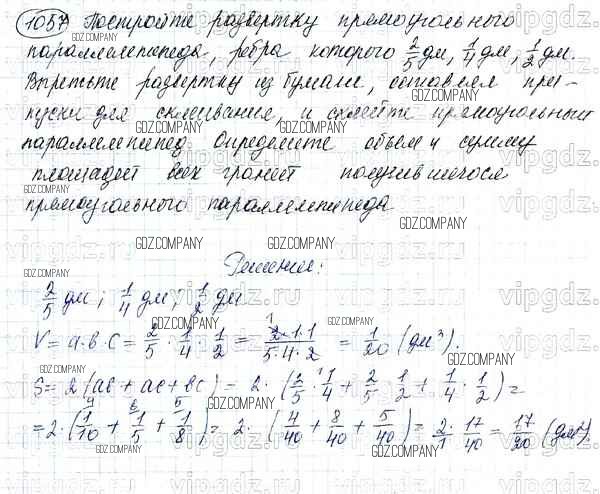 1057 Постройте развертку прямоугольного
параллелепипеда, ребра которого 2/5 дм, 1/4 дм, 1/2 дм.
Вырежьте развертку из бумаги, оставляя при-
пуски для склеивания, и склейте прямоугольный
параллелепипед Определите объем и сумму
площадей всех граней получившегося
прямоугольного параллелепипеда
Решение:
2/5 дм; 1/4 дм; 1/2 дм
V = a·b·c = 2/5 · 1/4 · 1/2 = 2·1·1/5·4·2 = 1/20 (дм³).
S = 2(ab + ac + bc) = 2·(2/5 · 1/4 + 2/5 · 1/2 + 1/4 · 1/2) =
= 2·(1/10 + 1/5 + 1/8) = 2·(4/40 + 8/40 + 5/40) = 2/1 · 17/40 = 17/20 (дм²).
GDZ.COMPANY
vipgdz.ru